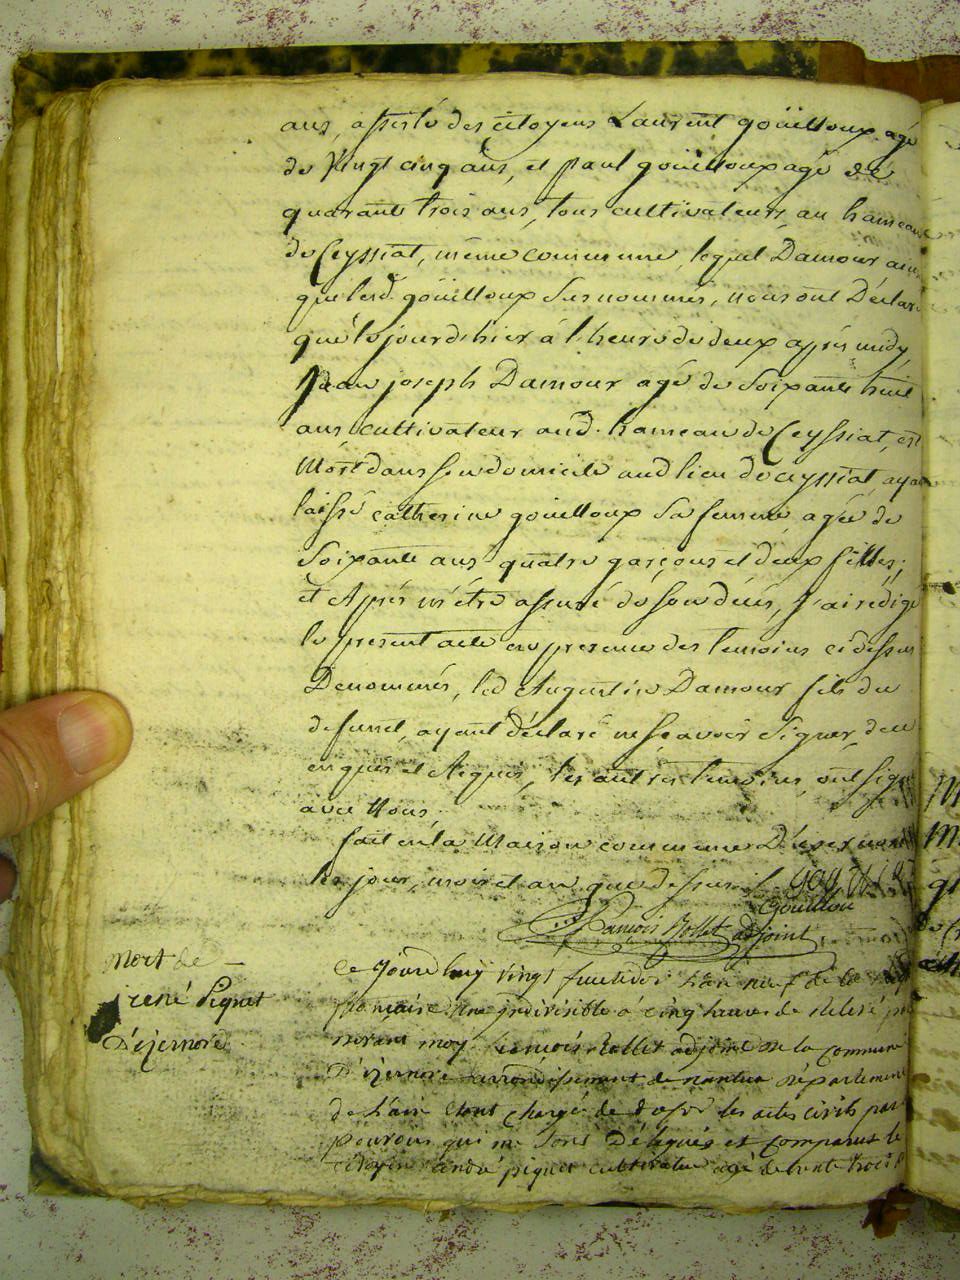 ans, assisté des citoyens Laurent goüilloux agé
de Vingt cinq ans, et paul goüilloux agé de
quarante trois ans, tous cultivateurs, au hameau
de Ceyssiat, même commune, lequel Damour, ain
que lesd. goüilloux susnommés, nous ont Déclar
que le jourd'hier à l'heure de deux après midy,
Jean joseph Damour agé de Soixante huit
ans cultivateur aud. hameau de Ceyssiat, est
Mort dans son domicile aud lieu de ceyssiat, ayan
laissé catherine goüilloux sa femme agée de
Soixante ans quatre garçons et deux filles;
et Après m'étre assuré de son décés, j'ai rédigé
le present acte en presence des temoins ci dessus
Denommés, led Augustin Damour fils du
defunct, ayant déclaré ne sçavoir signer, de ce
enquis et Requis, les autres temoins, ont signé
avec Nous,
fait en la Maison commune D'izernore
les jour, mois et an que dessus.
Gouillou
francois Rollet adjoint
Mort de
rené piquet
D'izernore
Ce jourdhuy vingt fructidor l'an neuf de la
française une indivisible à cinq heures de Releré par
devant moy francois Rollet adjoint de la commune
D'izernore arrondissement de nantua département
de l'ain etant chargé de les actes civils par
pouvoirs qui me sont Délégués et comparut le
citoyen andré piquet cultivateur agé de trente trois